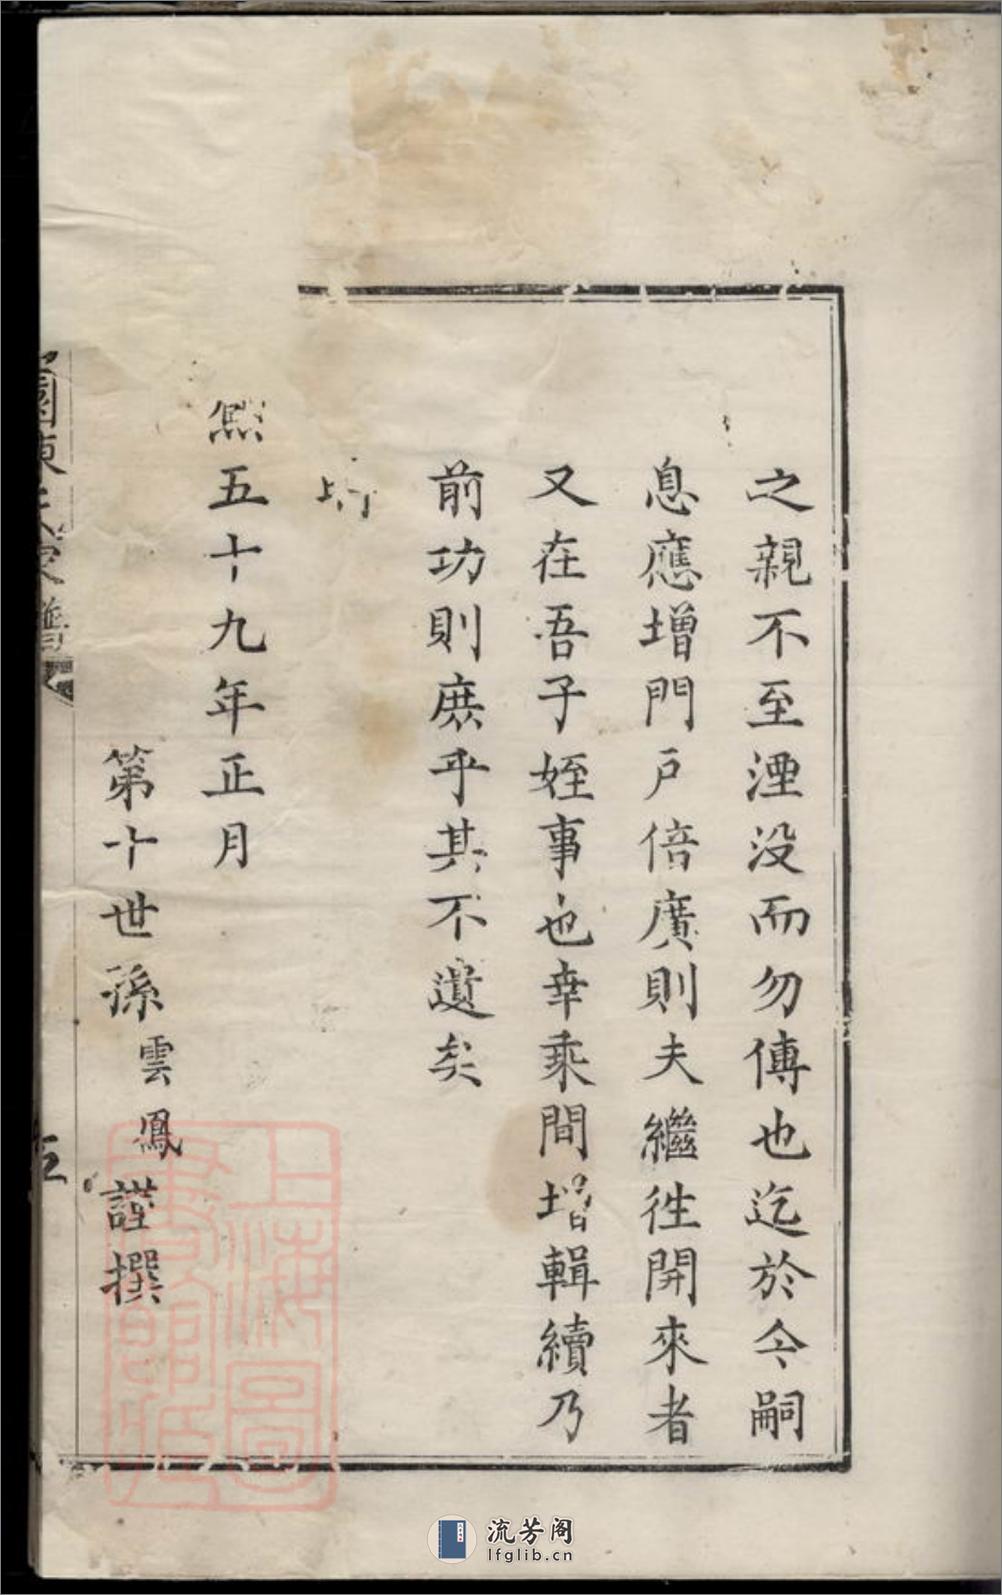 之親不至湮没而勿傳也迄於今嗣
息應增門戶倍廣則夫繼往開來者
又在吾子姪事也幸乘間增輯續乃
前功則庶乎其不遺矣
時
熙五十九年正月
第十世孫雲鳳謹撰
園陳氏家譜
五
上海圖書館藏
流芳阁
lfglib.cn